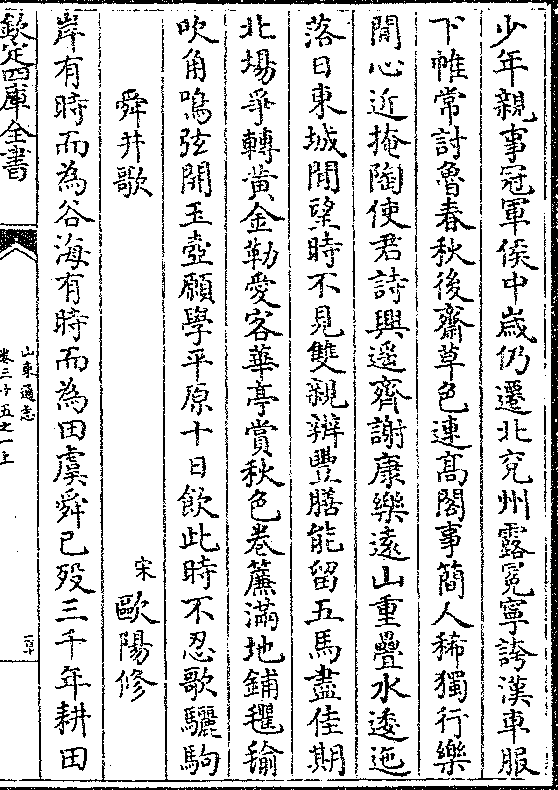 少年親事冠軍侯中歲仍遷北兖州露冕寧誇漢車服
下帷常討魯春秋後齋草色連髙閣事簡人稀獨行樂
閒心近掩陶使君詩興遥齊謝康樂遠山重疊水逶迤
落日東城閒望時不見雙親辦豐膳能留五馬盡佳期
北場爭轉黃金勒愛客華亭賞秋色卷簾滿地鋪氍毹
吹角鳴弦開玉壺願學平原十日飲此時不忍歌驪駒
舜井歌 宋 歐陽修
岸有時而為谷海有時而為田虞舜已歿三千年耕田
欽定四庫全書
山東通志
卷三十五之一上